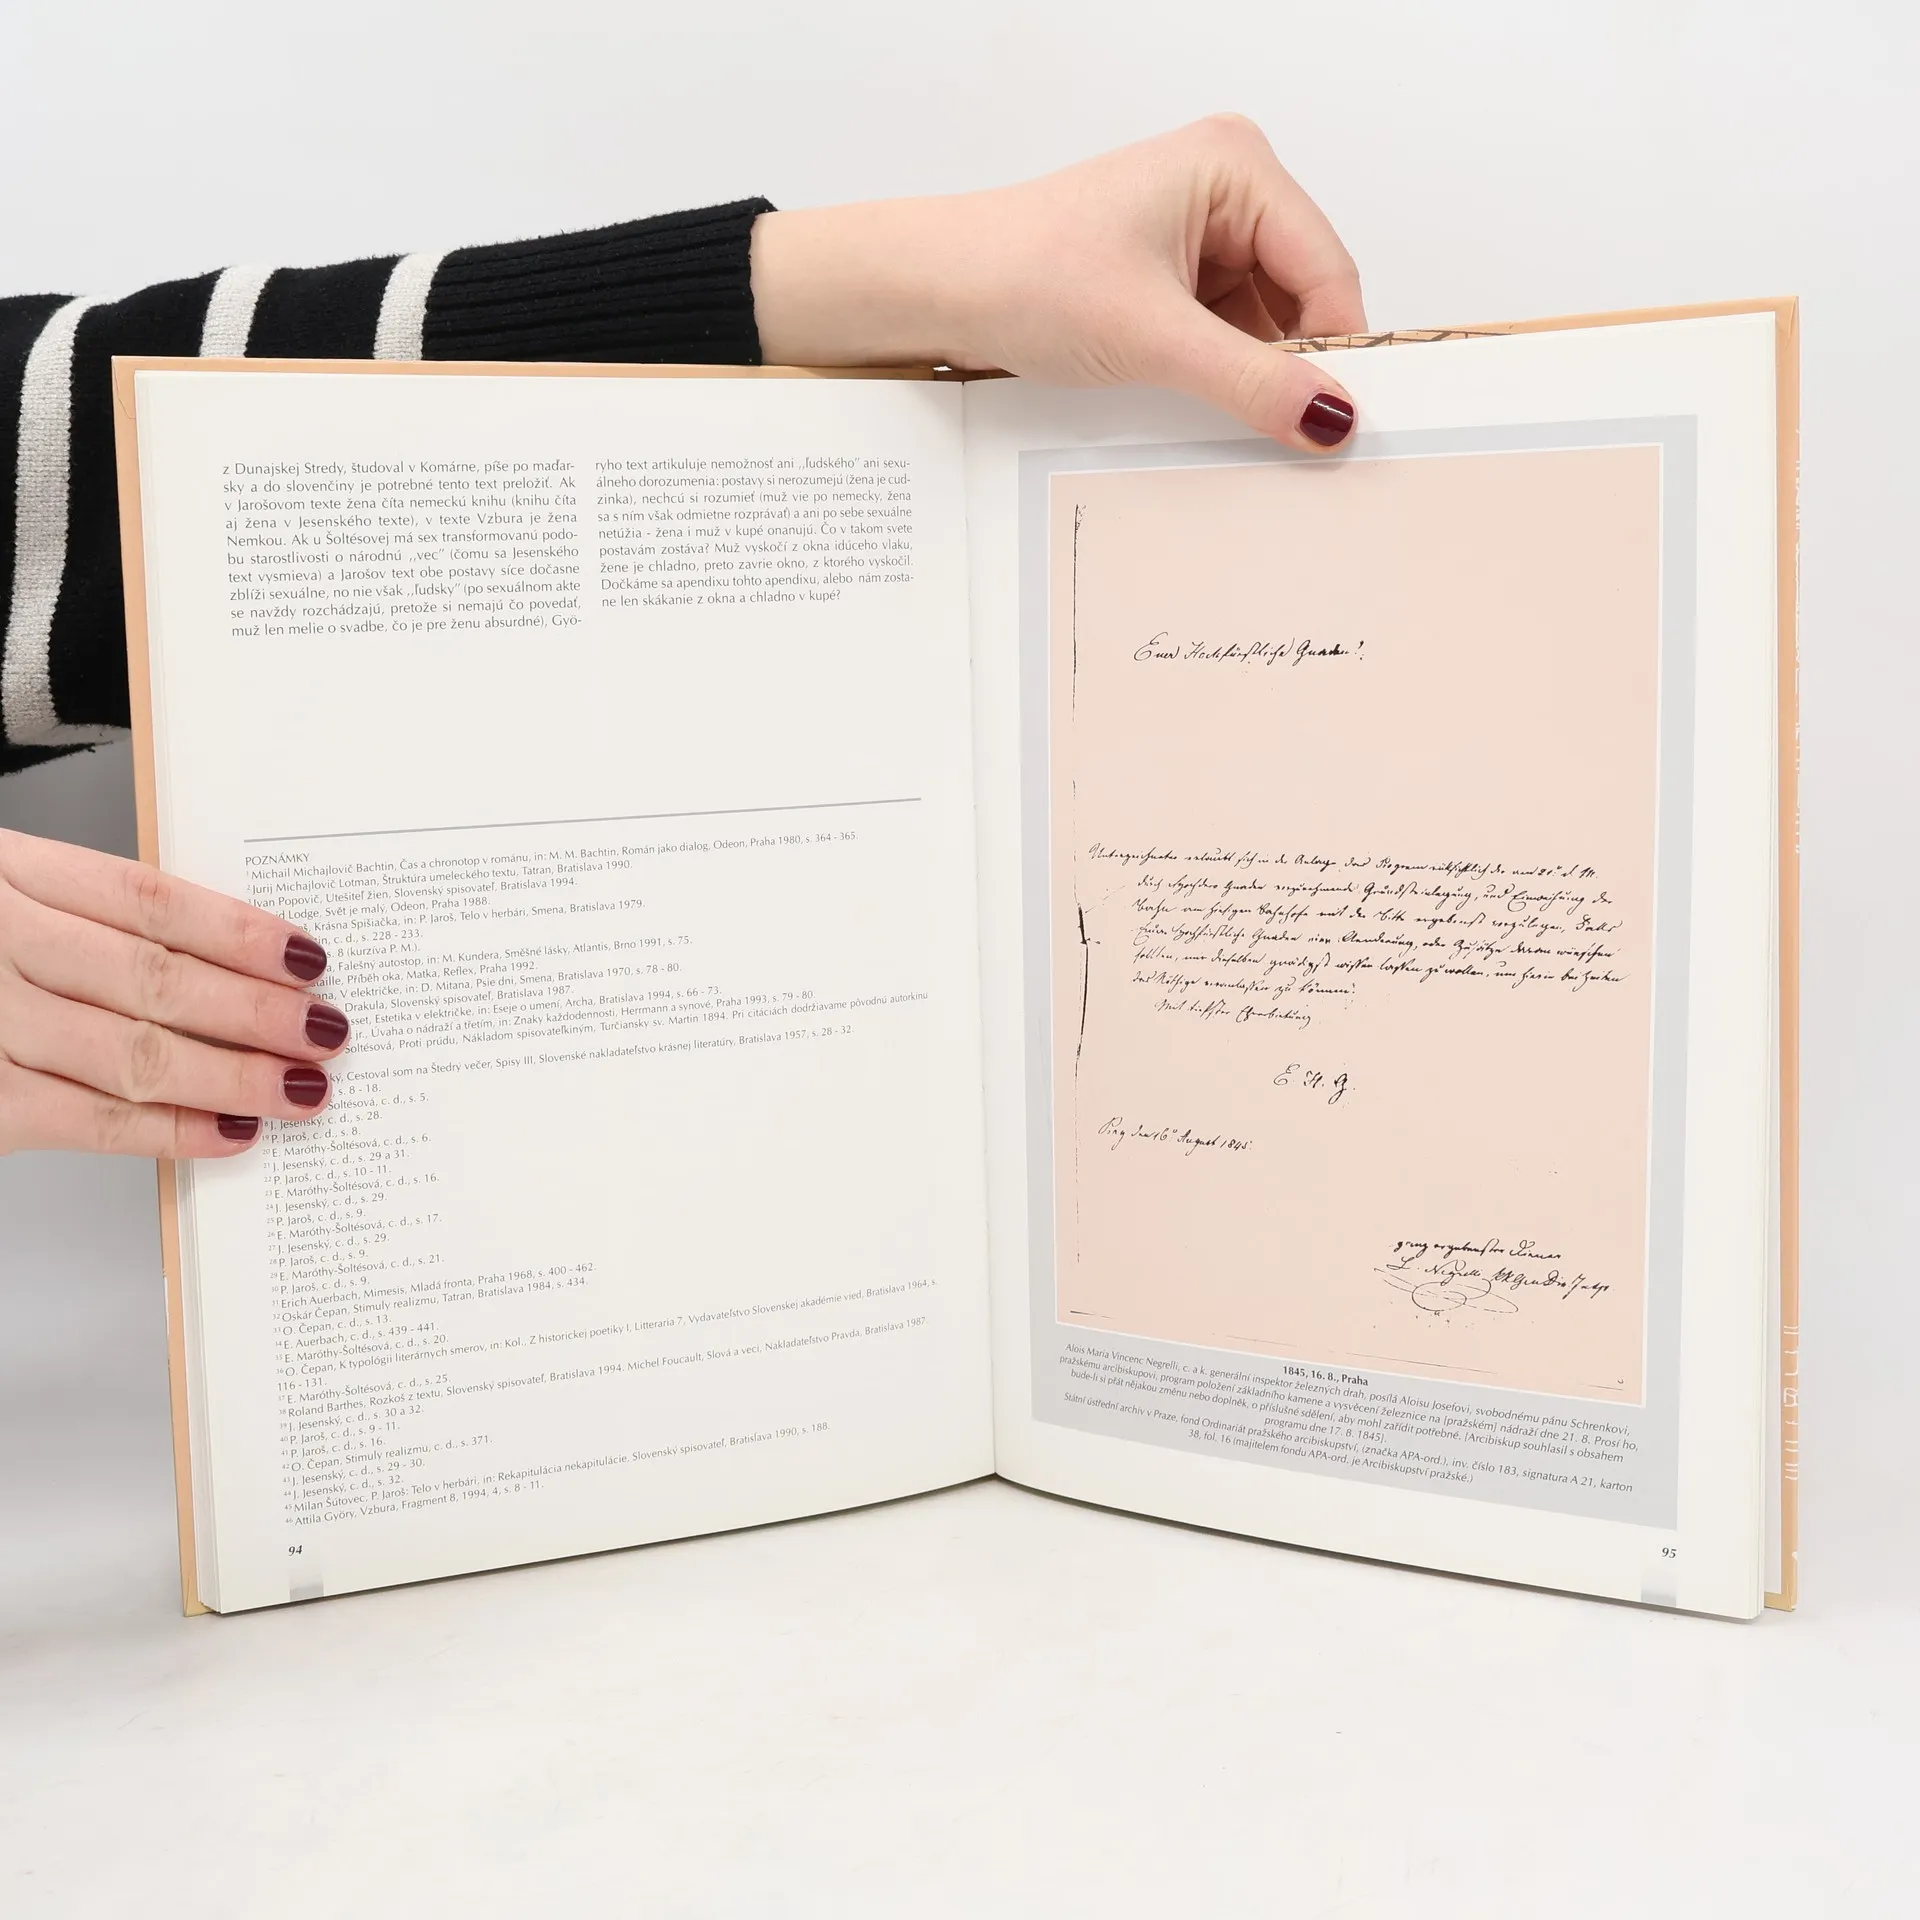 z Dunajskej Stredy, študoval v Komárne, píše po maďar-
sky a do slovenčiny je potrebné tento text preložiť. Ak
v Jarošovom texte žena číta nemeckú knihu (knihu číta
aj žena v Jesenského texte), v texte Vzbura je žena
Nemkou. Ak u Šoltésovej má sex transformovanú podo-
bu starostlivosti o národnú ,,vec" (čomu sa Jesenského
text vysmieva) a Jarošov text obe postavy síce dočasne
zblíži sexuálne, no nie však ,,ľudsky" (po sexuálnom akte
se navždy rozchádzajú, pretože si nemajú čo povedať,
muž len melie o svadbe, čo je pre ženu absurdné), Györ-
ryho text artikuluje nemožnosť ani ,,ľudského" ani sexu-
álneho dorozumenia: postavy si nerozumejú (žena je cud-
zinka), nechcú si rozumieť (muž vie po nemecky, žena
sa s ním však odmietne rozprávať) a ani po sebe sexuálne
netúžia - žena i muž v kupé onanujú. Čo v takom svete
postavám zostáva? Muž vyskočí z okna idúceho vlaku,
žene je chladno, preto zavrie okno, z ktorého vyskočil.
Dočkáme sa apendixu tohto apendixu, alebo nám zosta-
ne len skákanie z okna a chladno v kupé?
POZNÁMKY
1 Michail Michajlovič Bachtin, Čas a chronotop v románu, in: M. M. Bachtin, Román jako dialog. Odeon, Praha 1980, s. 364 - 365.
2 Jurij Michajlovič Lotman, Štruktúra umeleckého textu, Tatran, Bratislava 1990.
3 Ivan Popovič, Utešiteľ žien, Slovenský spisovateľ, Bratislava 1994.
Lodge. Svět je malý, Odeon, Praha 1988.
Krásna Spišiačka, in: P. Jaroš, Telo v herbári, Smena, Bratislava 1979.
c. d., s. 228 - 233.
s. 8 (kurzíva P. M.).
Falešný autostop, in: M. Kundera, Směšné lásky, Atlantis, Brno 1991, s. 75.
Příběh oka, Matka, Reflex, Praha 1992.
V električke, in: D. Mitana, Psie dni, Smena, Bratislava 1970, s. 78 - 80.
Drakula, Slovenský spisovateľ, Bratislava 1987.
Estetika v električke, in: Eseje o umení, Archa, Bratislava 1994, s. 66 - 73.
jr., Úvaha o nádraží a třetím, in: Znaky každodennosti, Herrmann a synové, Praha 1993, s. 79 - 80.
Šoltésová, Proti prúdu, Nákladom spisovateľkiným, Turčiansky sv. Martin 1894. Pri citáciách dodržiavame pôvodnú autorkinu
Cestoval som na Štedrý večer, Spisy III, Slovenské nakladateľstvo krásnej literatúry, Bratislava 1957, s. 28 - 32.
s. 8 - 18.
Šoltésová, c. d., s. 5.
J. Jesenský, c. d., s. 28.
19 P. Jaroš, c. d., s. 8.
20 E. Maróthy-Šoltésová, c. d., s. 6.
21 J. Jesenský, c. d., s. 29 a 31.
22 P. Jaroš, c. d., s. 10 - 11.
23 E. Maróthy-Šoltésová, c. d., s. 16.
24 J. Jesenský, c. d., s. 29.
25 P. Jaroš, c. d., s. 9.
26 E. Maróthy-Šoltésová, c. d., s. 17.
27 J. Jesenský, c. d., s. 29.
28 P. Jaroš, c. d., s. 9.
29 E. Maróthy-Šoltésová, c. d., s. 21.
30 P. Jaroš, c. d., s. 9.
31 Erich Auerbach, Mimesis, Mladá fronta, Praha 1968, s. 400 - 462.
32 Oskár Čepan, Stimuly realizmu, Tatran, Bratislava 1984, s. 434.
33 O. Čepan, c. d., s. 13.
34 E. Auerbach, c. d., s. 439 - 441.
35 E. Maróthy-Šoltésová, c. d., s. 20.
36 O. Čepan, K typológii literárnych smerov, in: Kol., Z historickej poetiky I, Litteraria 7, Vydavateľstvo Slovenskej akadémie vied, Bratislava 1964, s.
116 - 131.
37 E. Maróthy-Šoltésová, c. d., s. 25.
38 Roland Barthes, Rozkoš z textu, Slovenský spisovateľ, Bratislava 1994. Michel Foucault, Slová a veci, Nakladateľstvo Pravda, Bratislava 1987.
39 J. Jesenský, c. d., s. 30 a 32.
40 P. Jaroš, c. d., s. 9 - 11.
41 P. Jaroš, c. d., s. 16.
42 O. Čepan, Stimuly realizmu, c. d., s. 371.
43 J. Jesenský, c. d., s. 29 - 30.
44 J. Jesenský, c. d., s. 32.
45 Milan Šútovec, P. Jaroš: Telo v herbári, in: Rekapitulácia nekapitulácie, Slovenský spisovateľ, Bratislava 1990, s. 188.
46 Attila Györy, Vzbura, Fragment 8, 1994, 4, s. 8 - 11.
94
Euer Hochfürstliche Gnaden!
Unterzeichneter erlaubt sich in der Anlage das Program rücksichtlich der am 21. d. M.
durch Hochdero Gnaden vorzunehmende Grundsteinlegung, und Einweihung der
Bahn am hiesigen Bahnhofe mit der Bitte ergebenst vorzulegen, Falls
Euer Hochfürstliche Gnaden eine Aenderung, oder Zusätze daran wünschen
sollten, mir dieselben gnädigst wissen lassen zu wollen, um hierin bei Zeiten
das Nöthige veranlassen zu können.
Mit tiefster Ehrerbietung
E. H. G.
Prag den 16 August 1845.
ganz ergebenster Diener
L. Negrelli
1845, 16. 8., Praha
Alois Maria Vincenc Negrelli, c. a k. generální inspektor železných drah, posílá Aloisu Josefovi, svobodnému pánu Schrenkovi,
pražskému arcibiskupovi, program položení základního kamene a vysvěcení železnice na [pražském] nádraží dne 21. 8. Prosí ho,
bude-li si přát nějakou změnu nebo doplněk, o příslušné sdělení, aby mohl zařídit potřebné. [Arcibiskup souhlasil s obsahem
programu dne 17. 8. 1845].
Státní ústřední archiv v Praze, fond Ordinariát pražského arcibiskupství, (značka APA-ord.), inv. číslo 183, signatura A 21, karton
38, fol. 16 (majitelem fondu APA-ord. je Arcibiskupství pražské.)
95